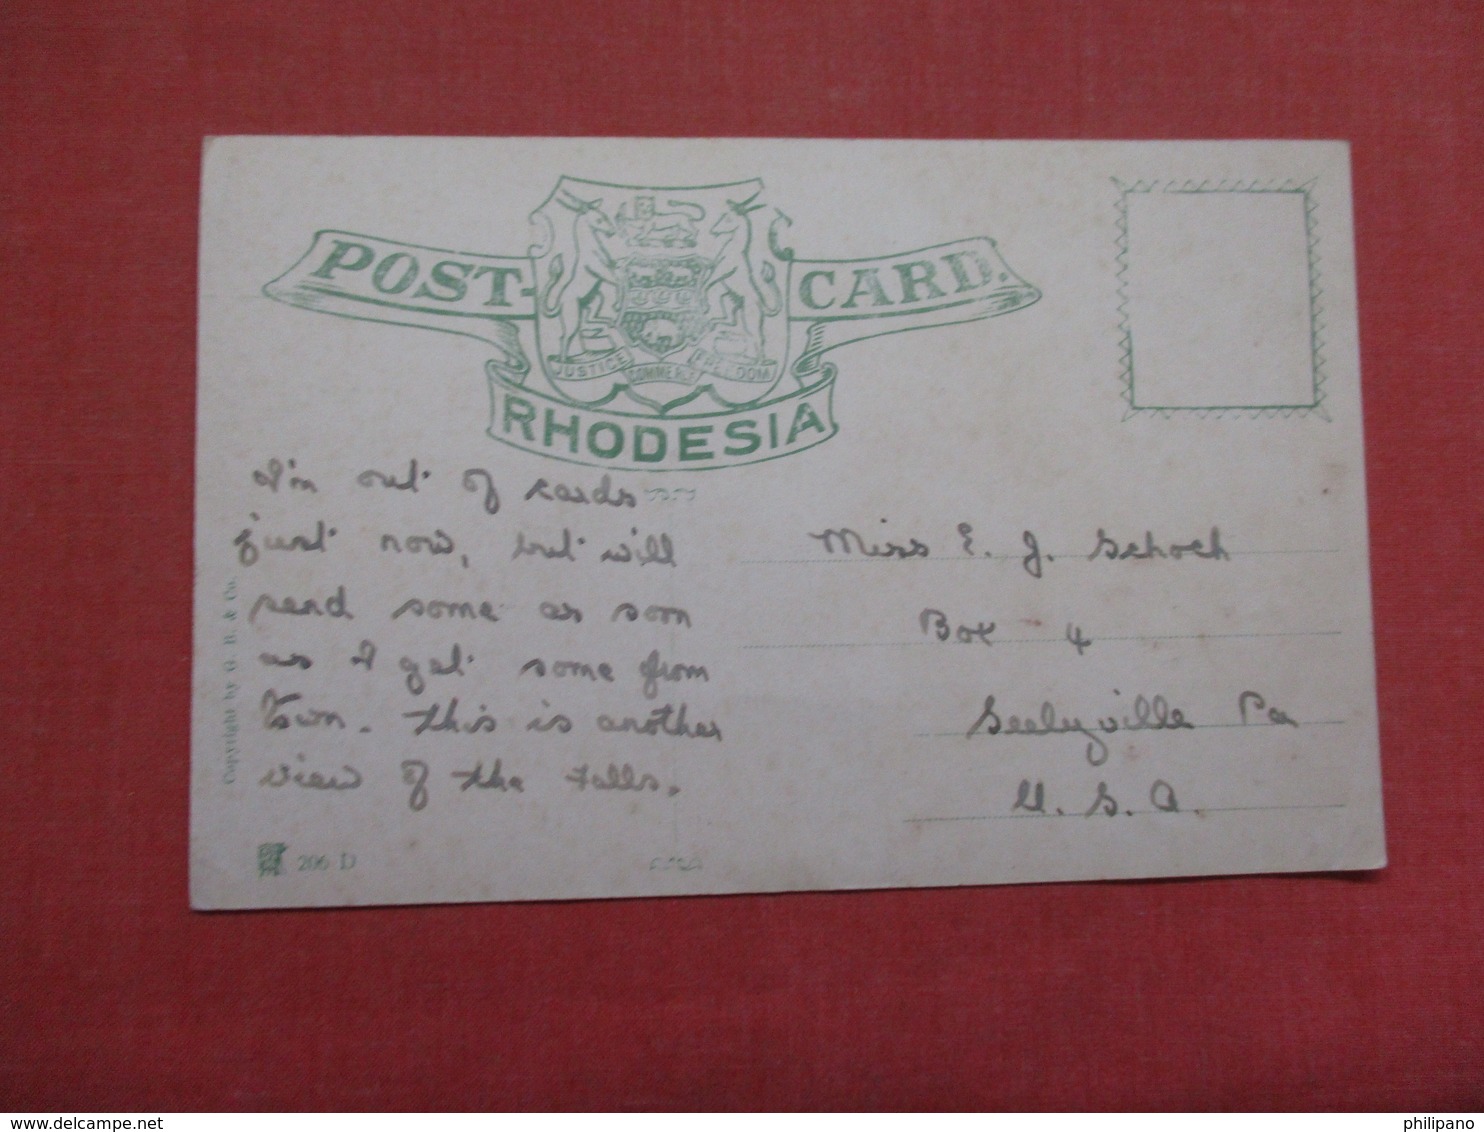 POST CARD.
JUSTICE COMMERCE FREEDOM
RHODESIA
I'm out of cards
just now, but will
send some as soon
as I get some from
Town. This is another
view of the Falls.
Miss E. J. Schoch
Box 4
Seelyville Pa
U. S. A.
Copyright by O. B. & Co.
206 D
www.delcampe.net
philipano